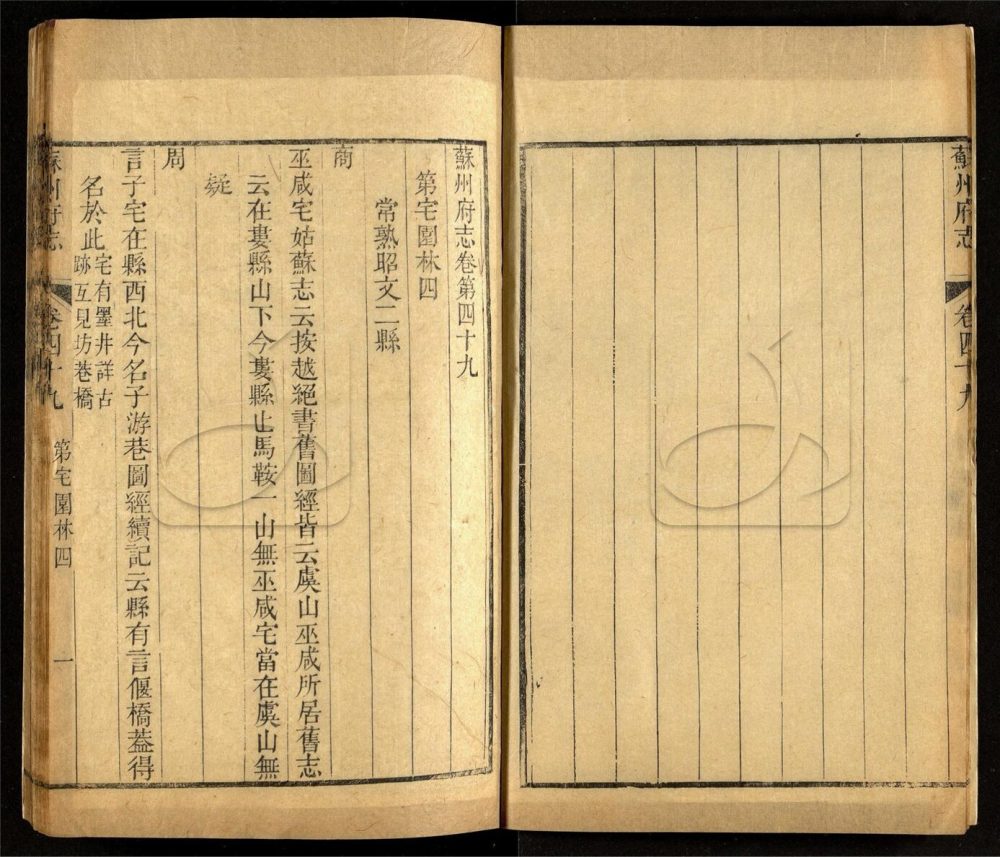 蘇州府志
卷四十九
蘇州府志卷第四十九
第宅園林四
常熟昭文二縣
商
巫咸宅姑蘇志云按越絕書舊圖經皆云虞山巫咸所居舊志
云在婁縣山下今婁縣止馬鞍一山無巫咸宅當在虞山無
疑
周
言子宅在縣西北今名子游巷圖經續記云縣有言偃橋葢得
名於此宅有墨井詳古
跡互見坊巷橋
蘇州府志
卷四十九
第宅園林四
一